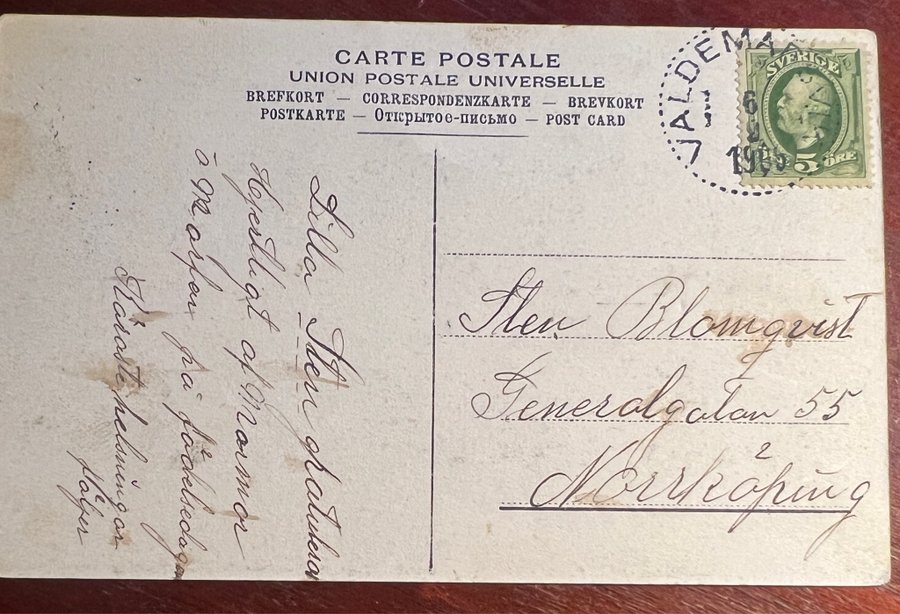 CARTE POSTALE
UNION POSTALE UNIVERSELLE
BREFKORT — CORRESPONDENZKARTE — BREVKORT
POSTKARTE — Открытое-письмо — POST CARD
VALDEMAR
6
9
SVERIGE
5 ÖRE
Lilla Sten gratuleras
Hjertligt af Mormor
o Morfar på födelsedagen
Käraste helsningar
följer
Sten Blomqvist
Generalgatan 55
Norrköping